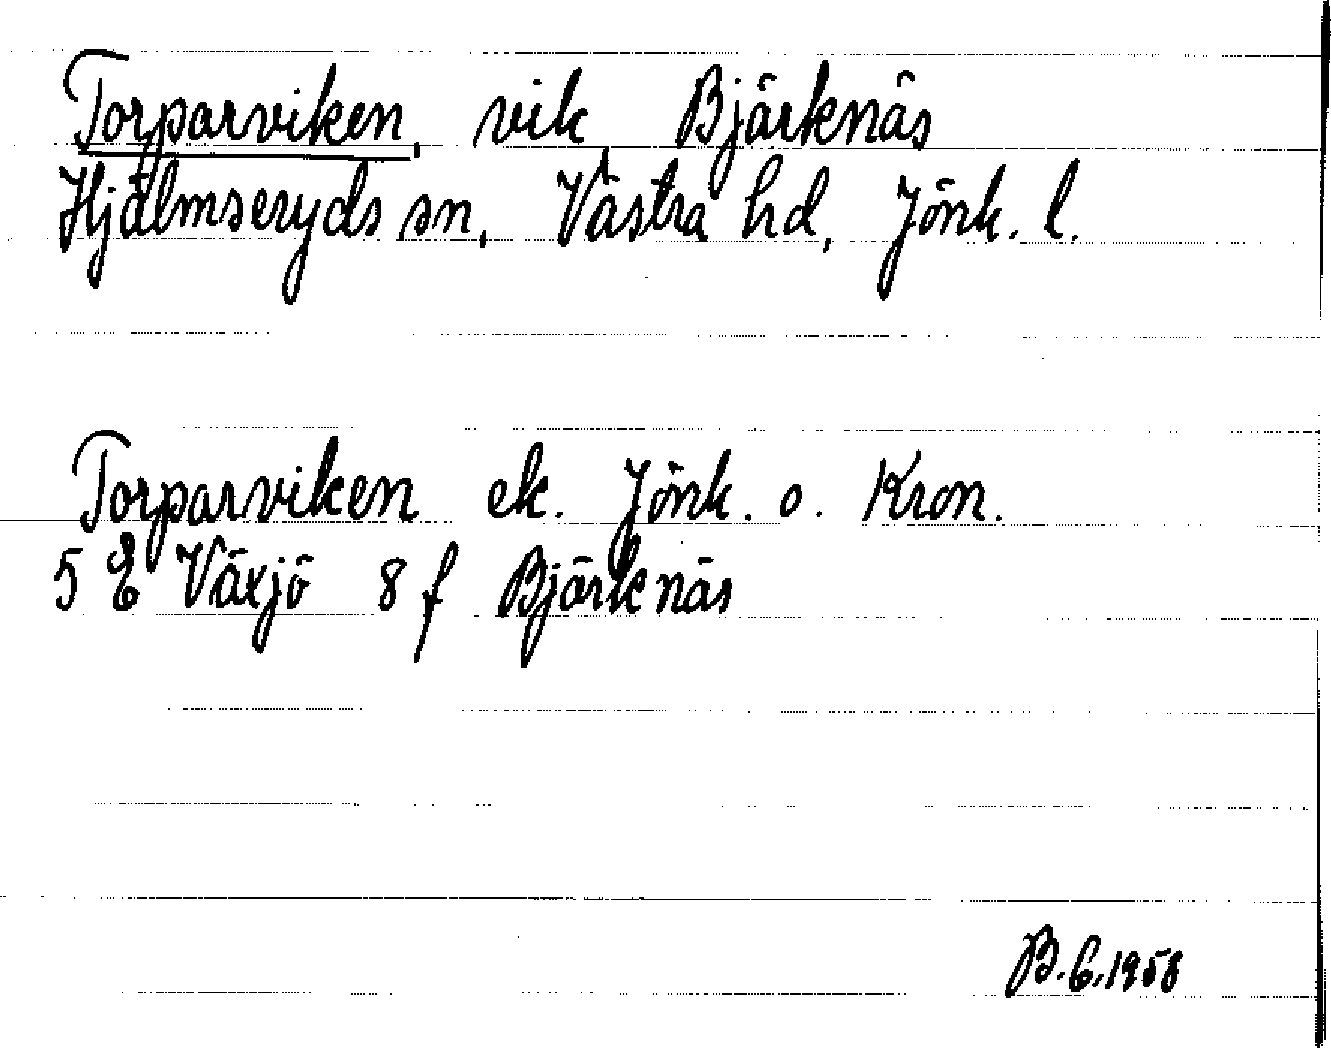 Torparviken, vik Björknäs
Hjälmseryds sn, Västra hd, Jönk. l.
Torparviken ek. Jönk. o. Kron.
5 E Växjö 8 f Björknäs
B.G.1958